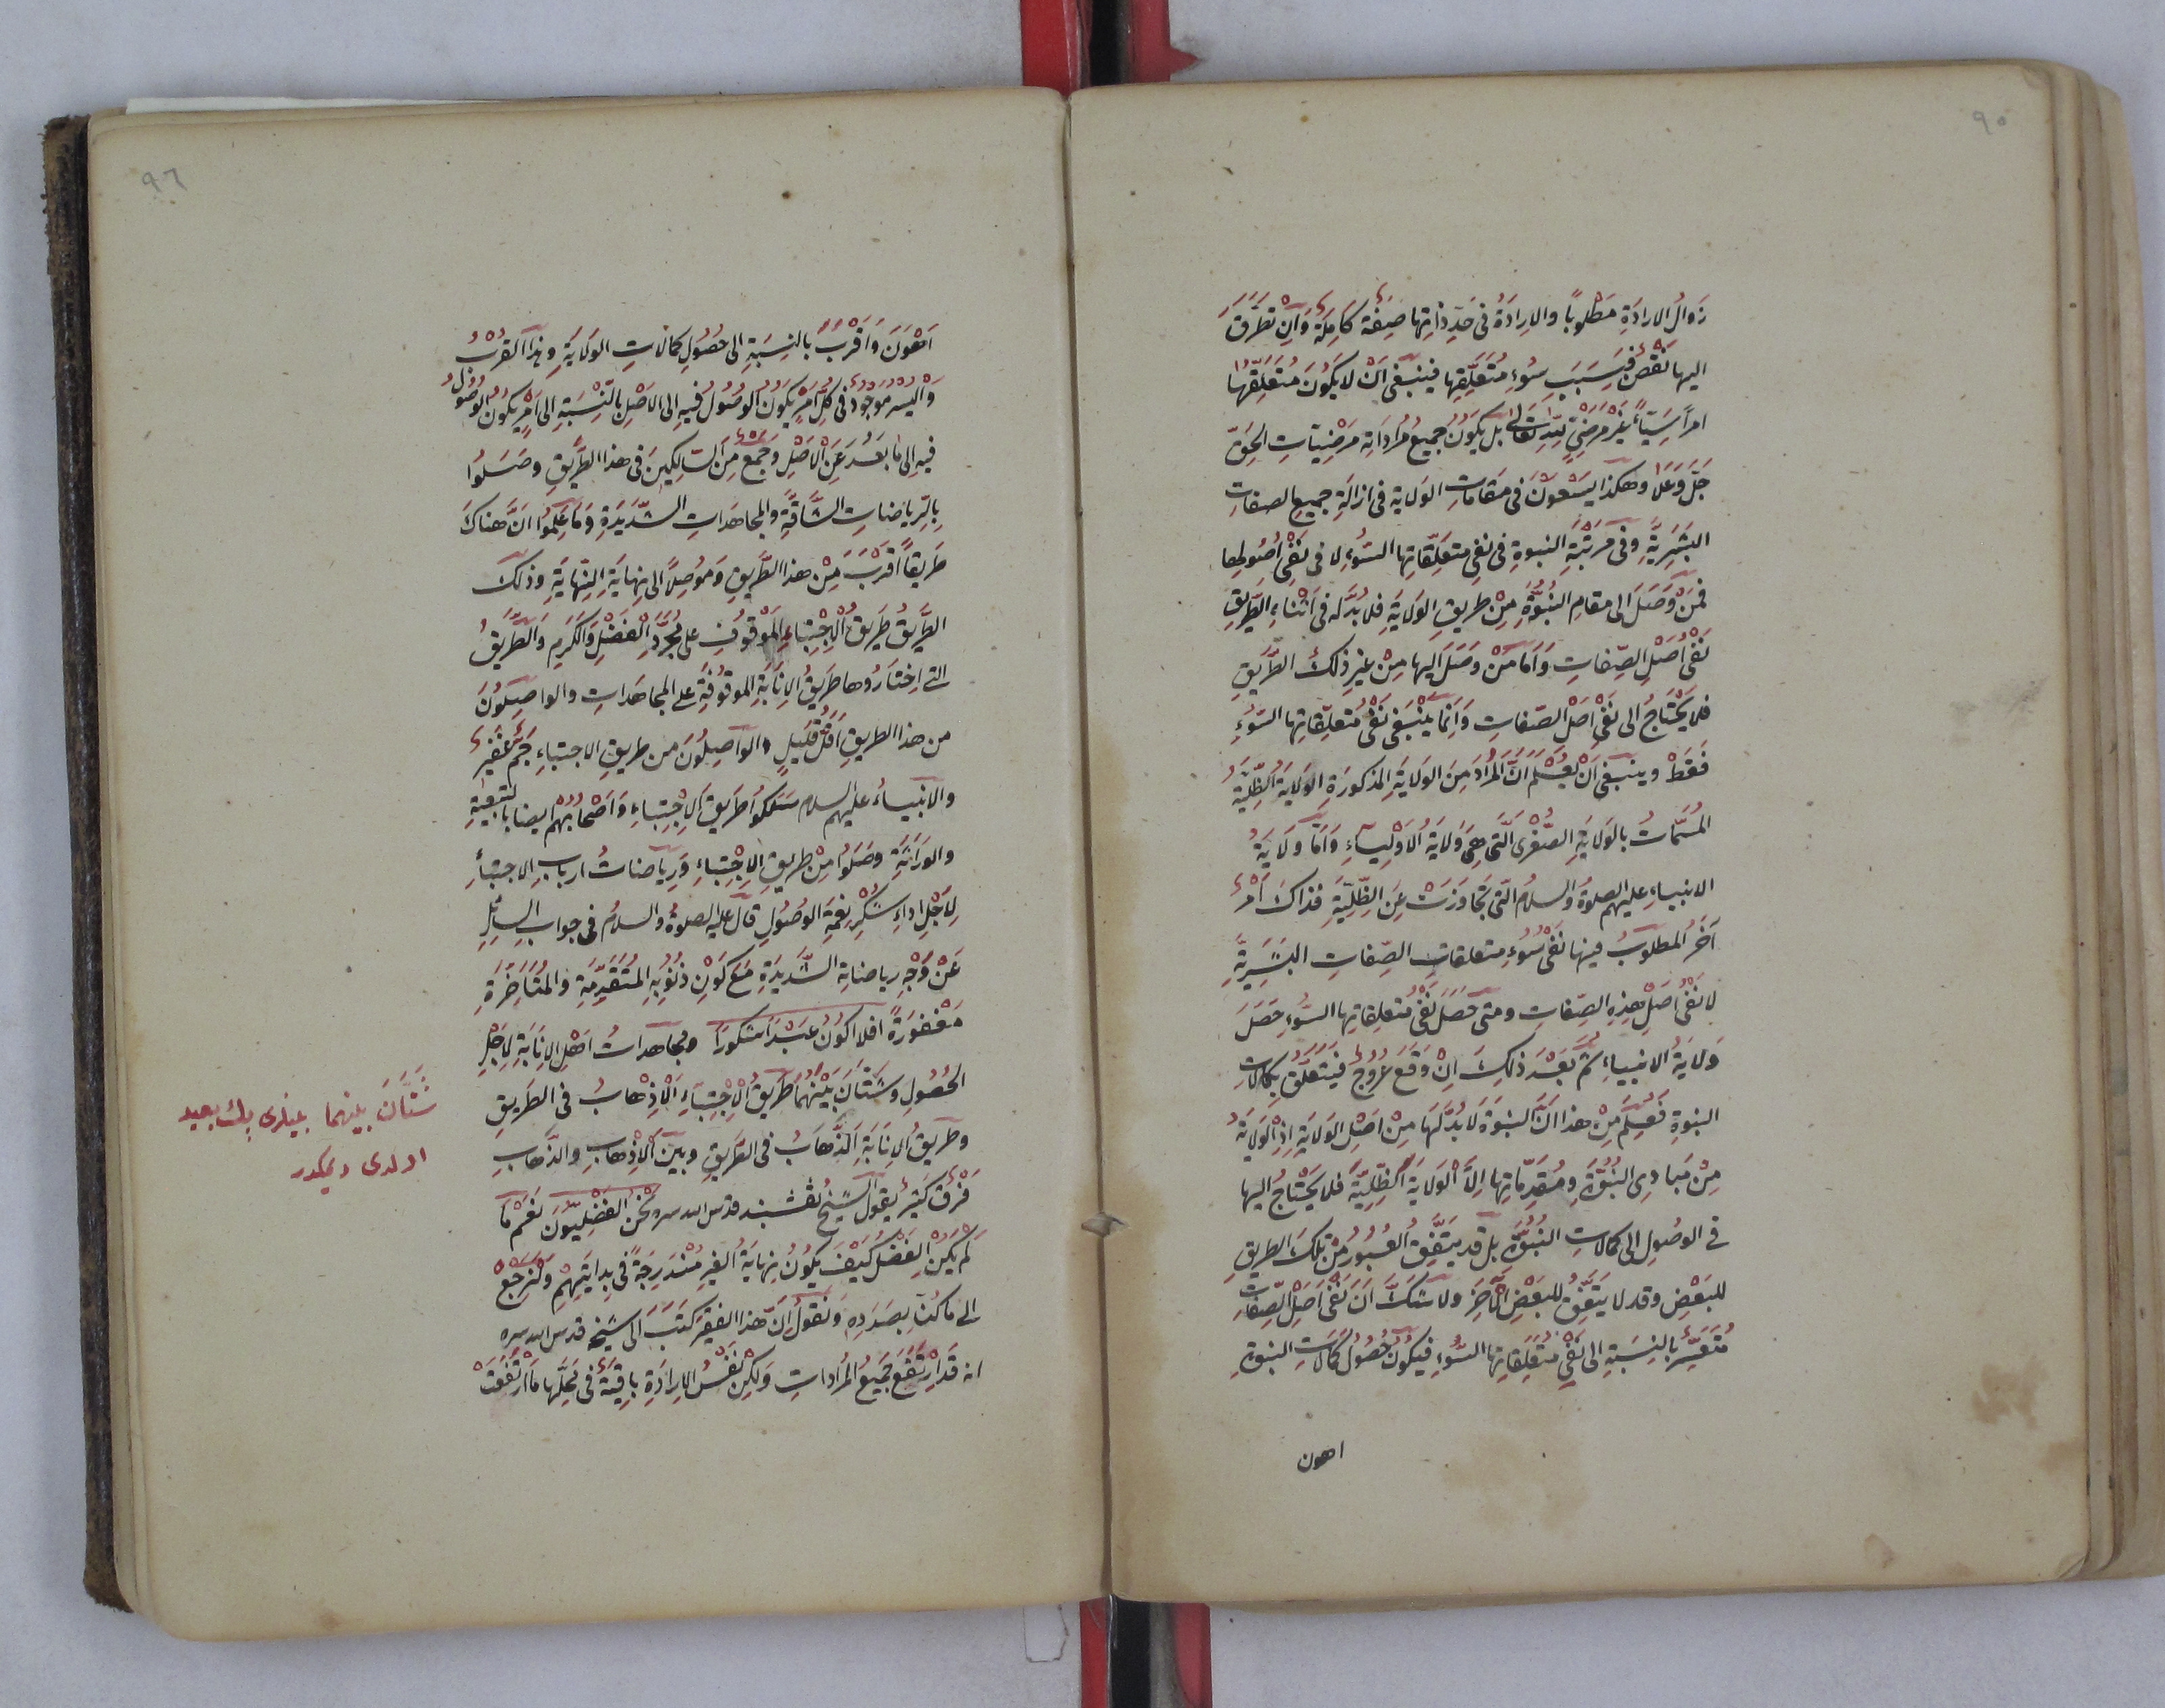 ٩٥
زَوالُ الارادَةِ مَطْلوبًا والارادَةُ فى حَدِّ ذاتِها صِفَة كَامِلَة وَاِنْ تطَرَّقَ
اليها نَقْصٌ فَبِسَبَبِ سُوءِ مُتَعَلِّقِها فينبغى اَنْ لا يَكُونَ مُتَعَلَّقُهَا
امراً سَيِّئاً غَيْرَ مَرْضِيٍّ لِلّٰهِ تعَالٰى بل يَكُونُ جميعُ مُرَادَاتِهِ مَرْضِيَّاتِ الحَقّ
جَلَّ وَعَلَا وهكذا يَسْعَوْنَ فى مَقامَاتِ الوَلاية فى ازالَةِ جميعِ الصفاتِ
البَشَرِيَّةِ وفى مَرْتَبَةِ النبوةِ فى نفى متعَلِّقاتِها السُّوءِ لا فى نَفْى اُصُولِها
فمَنْ وَصَلَ الى مقامِ النُّبُوَّةِ مِنْ طريقِ الوَلايَةِ فلا بُدَّ له فى اَثْناءِ الطَّرِيقِ
نَفْىُ اَصْلِ الصّفاتِ وَاَمَّا مَنْ وصَلَ اليها مِنْ غيرِ ذلِكَ الطَّرِيقِ
فلا يَحْتَاجُ الى نَفْىِ اَصْلِ الصّفاتِ وَاِنّما يَنْبَغى نَفْىُ مُتعلّقاتِها السُّوءِ
فَقَطْ وينبغى اَنْ يُعْلَمَ اَنَّ المُرَادَ مِنَ الوَلايَةِ المذكورَةِ الوَلايَةُ الظِّلِّيَّةُ
المُسَمَّاتُ بالوَلايَةِ الصُّغْرى الَّتى هِىَ وَلَايَةُ الاَوْلِيآءِ وَاَمَّا وَلَايَةُ
الانبياءِ عليهم الصلوةُ والسلامُ الّتى تجَاوَزَتْ عَنِ الظِّلِّيَّةِ فذاكَ اَمْرٌ
آخَرُ المطلوبُ فيها نَفْىُ سُوءِ متعلقاتِ الصِّفاتِ البَشَرِيَّةِ
لا نَفْىُ اَصْلِ هذِهِ الصِّفاتِ ومتى حَصَلَ نَفْىُ مُتعلِقاتِها السُّوءِ حَصَلَ
وَلايَةُ الانبياءِ ثمّ بَعْدَ ذلِكَ اِنْ وَقَعَ عُرُوجٌ فَيتعَلَّقُ بكمالاتِ
النبوةِ فعُلِمَ مِنْ هذا اَنَّ النبوَةَ لا بُدَّ لَهَا مِنْ اَصْلِ الوَلايَةِ اِذِ الْوَلايَةُ
مِنْ مَبادِى النُّبُوَّةِ ومُقَدِّمَاتِها اِلَّا الْوَلايَةَ الظِّلِّيَّةَ فلا يَحْتَاجُ اليها
فى الوصُولِ الى كمالاتِ النبُوَّةِ بل قد يَتَّفِقُ العُبُورُ مِنْ تِلْكَ الطريقِ
للبَعْضِ وقد لا يَتَّفِقُ للبَعْضِ الْآخَرِ ولا شَكَّ اَنَّ نَفْىَ اَصْلِ الصِّفَاتِ
مُتَعَسِّرٌ بالنِسْبَةِ الى نَفْىِ مُتَعَلِّقَاتِها السُّوءِ فيَكُونُ حُصُولُ كَمَالَاتِ النبوةِ
اهون
٩٦
اَهْوَنَ وَاَقْرَبَ بالنِسْبَةِ الى حُصُولِ كمالاتِ الولَايَةِ وهذا القُرْبُ
وَالْيُسْرُ موجُودٌ فى كُلِّ اَمْرٍ يَكُونُ الوصُولُ فيهِ الى الاَصْلِ بالنِّسْبَةِ الى اَمْرٍ يَكُونُ الوُصُولُ
فيهِ الى ما بَعُدَ عَنِ الْاَصْلِ وجَمْعٌ مِنَ السَّالِكِينَ فى هذا الطَّرِيقِ وَصَلُوا
بِالرِّياضاتِ الشَّاقَّةِ والمجاهَداتِ الشَّدِيدَةِ وَمَا عَلِمُوا اَنَّ هناكَ
طَرِيقاً اَقْرَبَ مِنْ هذا الطَّرِيقِ وَمُوصِلًا الى نِهايَةِ النِّهَايَةِ وذلكَ
الطَّرِيقُ طَرِيقُ الْاِجْتِبَاءِ المَوْقُوفِ على مُجَرَّدِ الْفَضْلِ وَالْكَرَمِ وَالطَّرِيقُ
التى اِختارُوها طَرِيقُ الْاِنَابَةِ الموقُوفَةِ على المجاهَداتِ والواصِلُونَ
من هذا الطريقِ اَقَلُّ قَليلٍ والوَاصِلُونَ من طريقِ الاجتباءِ جَمٌّ غَفِيرٌ
والانبياءُ عليهم السلام سَلَكُوا طَرِيقَ الْاِجْتِبَاءِ وَاَصْحَابُهُمْ ايضا بالتبعِيَّةِ
والورَاثَةِ وصَلُوا مِنْ طريقِ الِاجْتِبَاءِ وَرِيَاضاتُ اربابِ الاجتباءِ
لِاَجْلِ اداءِ شُكْرِ نِعْمَةِ الوصُولِ قال عليه الصلوةُ والسلامُ فى جوابِ السائِلِ
عَنْ وَجْهِ رياضاتِهِ الشَّدِيدَةِ مَعَ كَوْنِ ذُنُوبِهِ المُتَقَدِّمَةِ والمُتَأَخِّرَةِ
مَغْفُورَةً افلا اكونُ عَبْدًا شكورًا ومجاهداتُ اَهْلِ الِانَابَةِ لِاَجْلِ
الحُصُولِ وشَتَّانَ بَيْنَهُمَا طَرِيقُ الْاِجْتِبَاءِ الْاِذْهَابُ فى الطَّرِيقِ
وطَرِيقُ الْاِنَابَةِ الذَّهَابُ فى الطَّرِيقِ وبَيْنَ الْاِذْهَابِ والذَّهابِ
فَرْقٌ كَثِيرٌ يقولُ الشيخُ نقشبند قدس الله سره نَحْنُ الفَضْلِيُّونَ نَعَمْ ما
لَمْ يَكُنِ الفَضْلُ كَيْفَ يَكُونُ نِهايَةُ الغَيْرِ مُنْدَرِجَةً فى بِدايَتِهِمْ وَلْنَرْجِعْ
الى مَا كُنَّا بِصَدَدِهِ وَنَقُولُ اِنَّ هذا الفقيرَ كَتَبَ الى شيخِهِ قدس الله سره
انه قَدِ ارْتَفَعَ جَمِيعُ المُرَاداتِ وَلٰكِنْ نَفْسُ الْاِرادَةِ بَاقِيَةٌ فى مَحَلِّها مَا ارْتَفَعَتْ
شَتَّانَ بَيْنَهُمَا بينلرى بك بعيد
اولدى ديمكدر